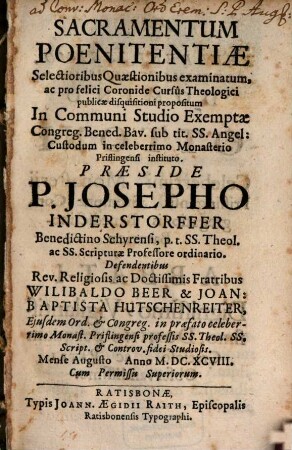 ad Conv: Monac: Ord Erem: S: P. Aug:
SACRAMENTUM
POENITENTIÆ
Selectioribus Quæstionibus examinatum,
ac pro felici Coronide Cursûs Theologici
publicæ disquisitioni propositum
In Communi Studio Exemptæ
Congreg. Bened. Bav. sub tit. SS. Angel:
Custodum in celeberrimo Monasterio
Priflingensi instituto.
PRÆSIDE
P. JOSEPHO
INDERSTORFFER
Benedictino Schyrensi, p. t. SS. Theol.
ac SS. Scripturæ Professore ordinario.
Defendentibus
Rev. Religiosis ac Doctissimis Fratribus
WILIBALDO BEER & JOAN:
BAPTISTA HUTSCHENREITER,
Ejusdem Ord. & Congreg. in præfato celeber-
rimo Monast. Priflingensi professis SS. Theol. SS.
Script. & Controv. fidei Studiosis.
Mense Augusto Anno M. DC. XCVIII.
Cum Permissu Superiorum.
RATISBONÆ,
Typis JOANN. ÆGIDII RAITH, Episcopalis
Ratisbonensis Typographi.